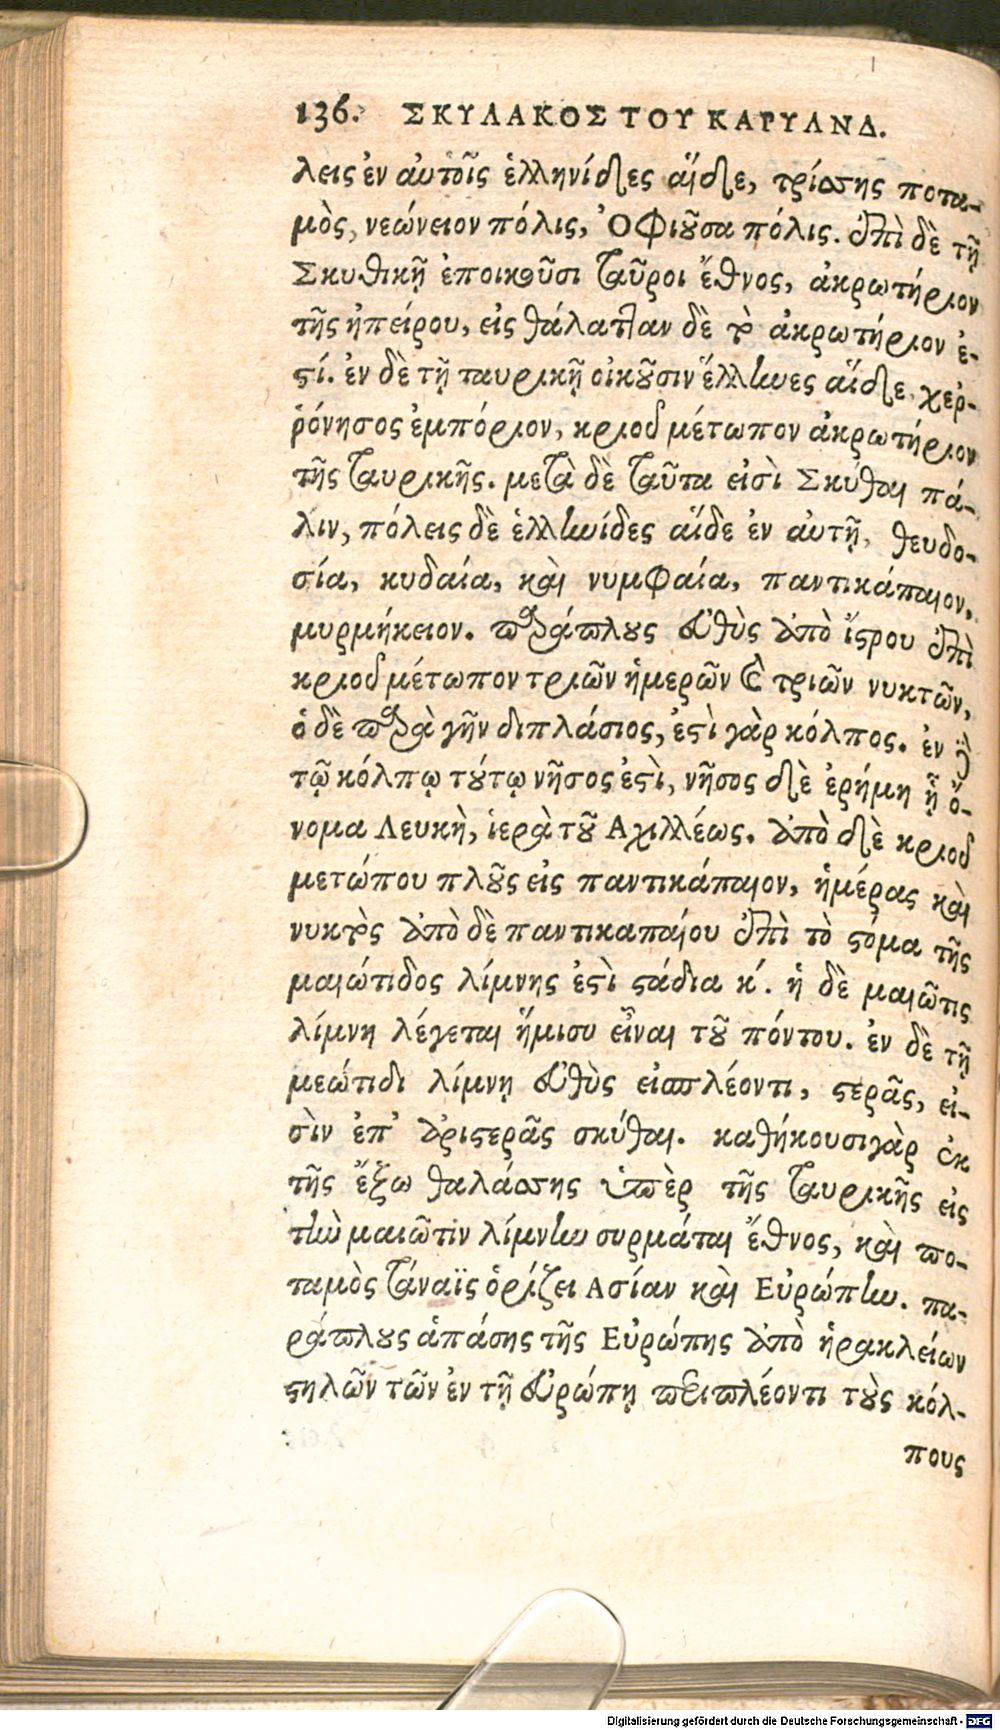 136. ΣΚΥΛΑΚΟΣ ΤΟΥ ΚΑΡΥΛΝΔ.
λεις ἐν αὐτοῖς ἑλληνίδες αἵδε, τρίσσης ποτα-
μὸς, νεώνειον πόλις, Ὀφιοῦσα πόλις. ἐπὶ δὲ τῇ
Σκυθικῇ ἐποικοῦσι Ταῦροι ἔθνος, ἀκρωτήριον
τῆς ἠπείρου, εἰς θάλατταν δὲ τὸ ἀκρωτήριον ἐ-
στί. ἐν δὲ τῇ ταυρικῇ οἰκοῦσιν ἕλληνες αἵδε, χερ-
ρόνησος ἐμπόριον, κριοῦ μέτωπον ἀκρωτήριον
τῆς Ταυρικῆς. μετὰ δὲ Ταῦτα εἰσὶ Σκύθαι πά-
λιν, πόλεις δὲ ἑλληνίδες αἵδε ἐν αὐτῇ, θευδο-
σία, κυδαία, καὶ νυμφαία, παντικάπαιον,
μυρμήκειον. παράπλους εὐθὺς ἀπὸ ἴστρου ἐπὶ
κριοῦ μέτωπον τριῶν ἡμερῶν καὶ τριῶν νυκτῶν,
ὁ δὲ παρὰ γῆν διπλάσιος, ἐστὶ γὰρ κόλπος. ἐν δὲ
τῷ κόλπῳ τούτῳ νῆσος ἐστὶ, νῆσος δὲ ἐρήμη ᾗ ὄ-
νομα Λευκὴ, ἱερὰ τοῦ Αχιλλέως. ἀπὸ δὲ κριοῦ
μετώπου πλοῦς εἰς παντικάπαιον, ἡμέρας καὶ
νυκτὸς ἀπὸ δὲ παντικαπαίου ἐπὶ τὸ στόμα τῆς
μαιώτιδος λίμνης ἐστὶ στάδια κʹ. ἡ δὲ μαιῶτις
λίμνη λέγεται ἥμισυ εἶναι τοῦ πόντου. ἐν δὲ τῇ
μεώτιδι λίμνῃ εὐθὺς εἰσπλέοντι, στερᾶς, εἰ-
σὶν ἐπ' ἀριστερᾶς σκύθαι. καθήκουσι γὰρ ἐκ
τῆς ἔξω θαλάσσης ὑπὲρ τῆς Ταυρικῆς εἰς
τὴν μαιῶτιν λίμνην συρμάται ἔθνος, καὶ πο-
ταμὸς Τάναϊς ὁρίζει Ασίαν καὶ Εὐρώπην. πα-
ράπλους ἁπάσης τῆς Εὐρώπης ἀπὸ ἡρακλείων
στηλῶν τῶν ἐν τῇ εὐρώπῃ περιπλέοντι τοὺς κόλ-
πους
Digitalisierung gefördert durch die Deutsche Forschungsgemeinschaft - DFG